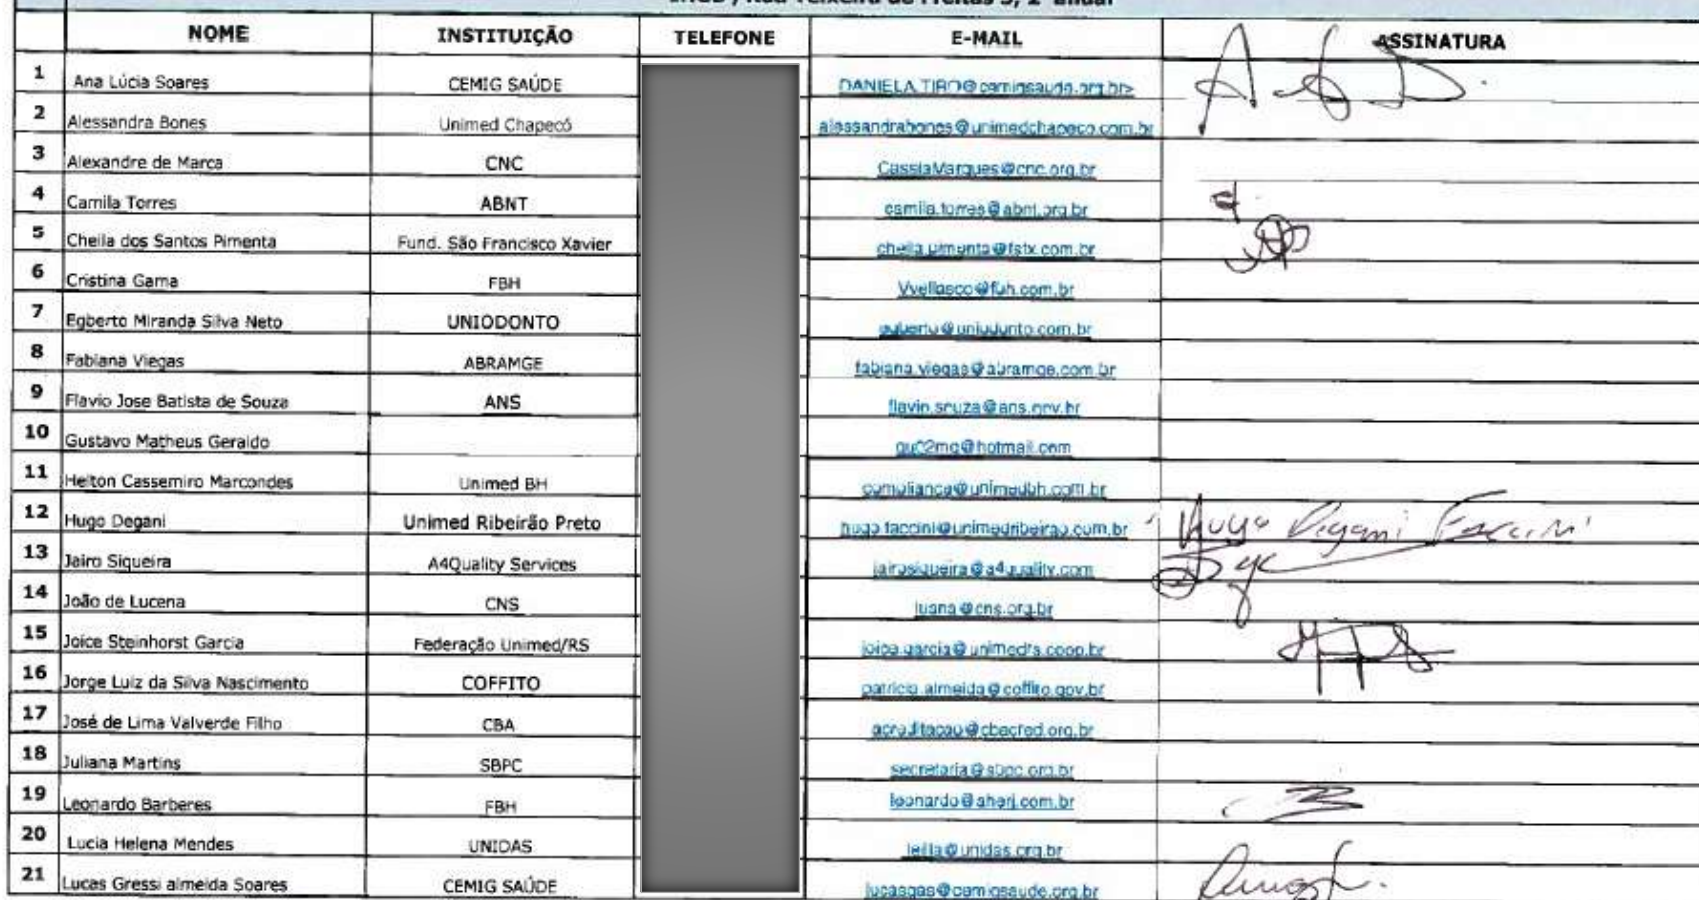 NOME INSTITUIÇÃO TELEFONE E-MAIL ASSINATURA
1 Ana Lúcia Soares CEMIG SAÚDE DANIELA.TIRO@cemigsaude.org.br>
2 Alessandra Bones Unimed Chapecó alessandrabones@unimedchapeco.com.br
3 Alexandre de Marca CNC CassiaMarques@cnc.org.br
4 Camila Torres ABNT camila.torres@abnt.org.br
5 Cheila dos Santos Pimenta Fund. São Francisco Xavier cheila.pimenta@fsfx.com.br
6 Cristina Gama FBH Vvellasco@fbh.com.br
7 Egberto Miranda Silva Neto UNIODONTO egberto@uniodonto.com.br
8 Fabiana Viegas ABRAMGE fabiana.viegas@abramge.com.br
9 Flavio Jose Batista de Souza ANS flavio.souza@ans.gov.br
10 Gustavo Matheus Geraldo gu02mg@hotmail.com
11 Helton Cassemiro Marcondes Unimed BH compliance@unimedbh.com.br
12 Hugo Degani Unimed Ribeirão Preto hugo.faccini@unimedribeirao.com.br Hugo Degani Faccini
13 Jairo Siqueira A4Quality Services jairosiqueira@a4quality.com
14 João de Lucena CNS luana@cns.org.br
15 Joice Steinhorst Garcia Federação Unimed/RS joice.garcia@unimedrs.coop.br
16 Jorge Luiz da Silva Nascimento COFFITO patricia.almeida@coffito.gov.br
17 José de Lima Valverde Filho CBA acreditacao@cbacred.org.br
18 Juliana Martins SBPC secretaria@sbpc.org.br
19 Leonardo Barberes FBH leonardo@aherj.com.br
20 Lucia Helena Mendes UNIDAS leilla@unidas.org.br
21 Lucas Gressi almeida Soares CEMIG SAÚDE lucasgas@cemigsaude.org.br